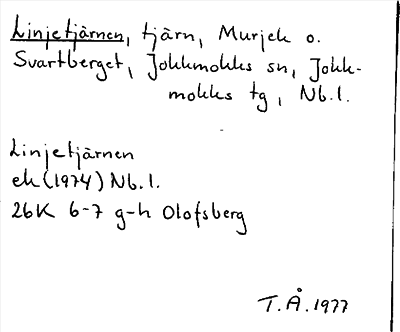 Linjetjärnen, tjärn, Murjek o.
Svartberget, Jokkmokks sn, Jokk-
mokks tg, Nb.l.
Linjetjärnen
ek (1974) Nb.l.
26K 6-7 g-h Olofsberg
T.Å. 1977